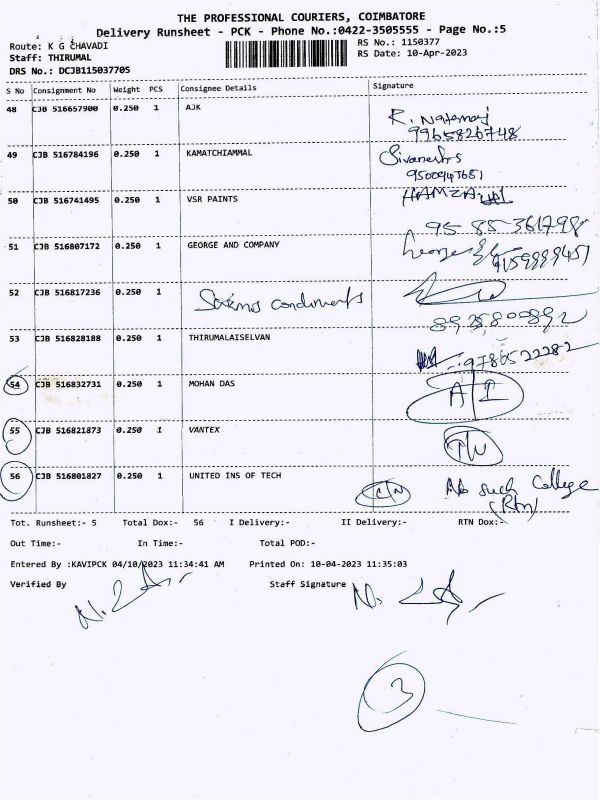 THE PROFESSIONAL COURIERS, COIMBATORE
Delivery Runsheet - PCK - Phone No.:0422-3505555 - Page No.:5
Route: K G CHAVADI RS No.: 1150377
Staff: THIRUMAL RS Date: 10-Apr-2023
DRS No.: DCJB115037705
S No Consignment No Weight PCS Consignee Details Signature
48 CJB 516657900 0.250 1 AJK R. Nataraj
9965826748
49 CJB 516784196 0.250 1 KAMATCHIAMMAL
9500947651
50 CJB 516741495 0.250 1 VSR PAINTS HAMZA
95 85 361798
51 CJB 516807172 0.250 1 GEORGE AND COMPANY George
9159889451
52 CJB 516817236 0.250 1 condiments
53 CJB 516828188 0.250 1 THIRUMALAISELVAN
9786522282
54 CJB 516832731 0.250 1 MOHAN DAS A I
55 CJB 516821873 0.250 1 VANTEX
56 CJB 516801827 0.250 1 UNITED INS OF TECH C N No such College
(Rtn)
Tot. Runsheet:- 5 Total Dox:- 56 I Delivery:- II Delivery:- RTN Dox:-
Out Time:- In Time:- Total POD:-
Entered By :KAVIPCK 04/10/2023 11:34:41 AM Printed On: 10-04-2023 11:35:03
Verified By Staff Signature
3